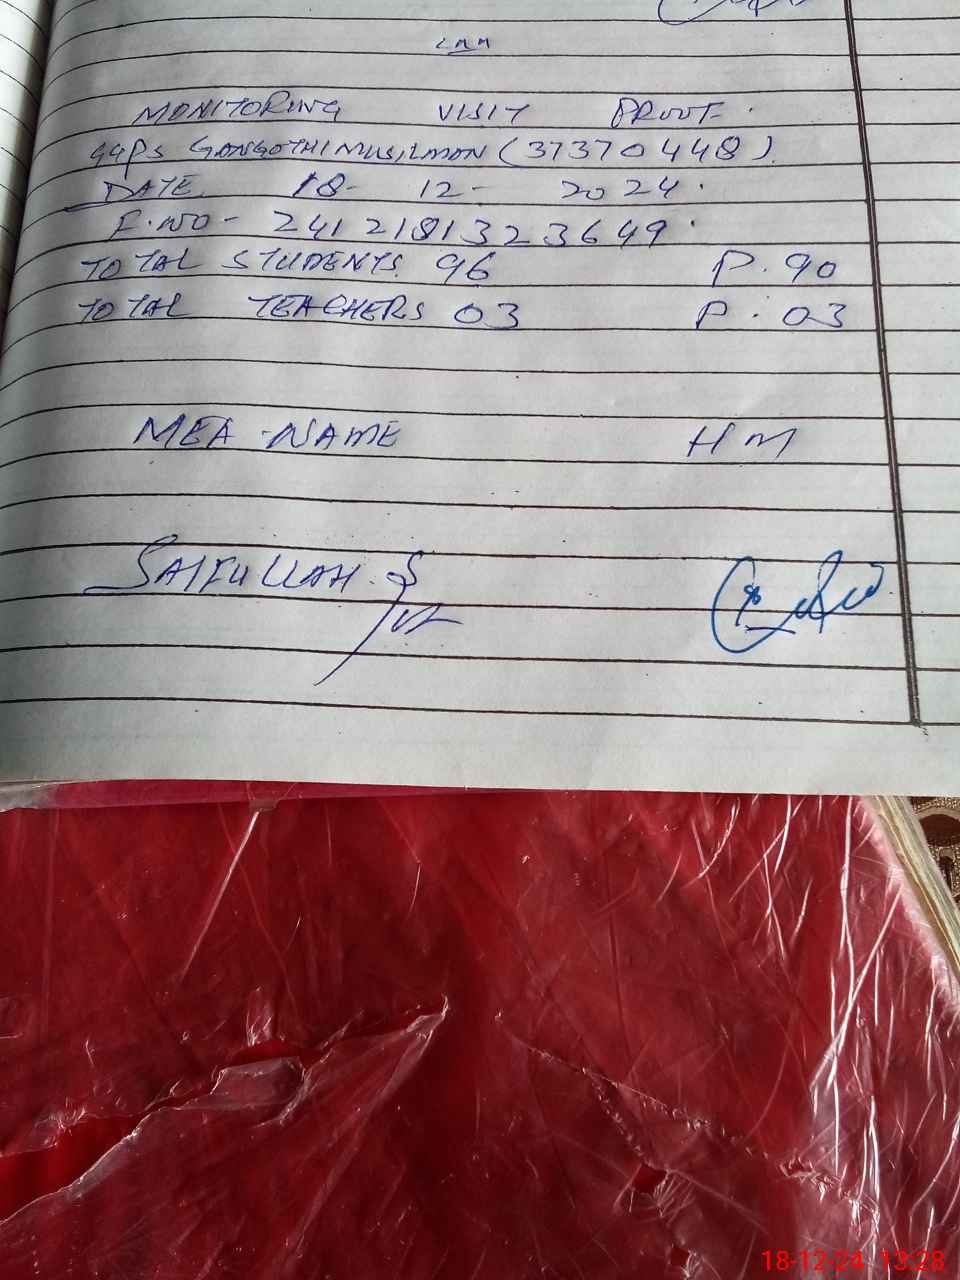 MONITORING VISIT PROOF.
GGPS GONGOTHIMUSILMON (37370448)
DATE 18- 12- 2024.
F.NO- 2412181323649.
TOTAL STUDENTS. 96 P. 90
TOTAL TEACHERS 03 P. 03
MEA NAME HM
SAIFULLAH.
18-12-24 13:28